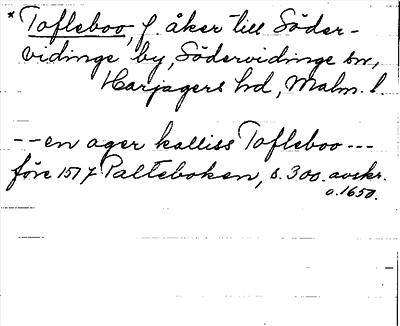 * Tofleboo, f. åker till Söder-
vidinge by, Södervidinge sn,
Harjagers hd, Malm. l.
--en ager kalliss Tofleboo---
före 1517 Palteboken, s. 300. avskr.
o. 1650.